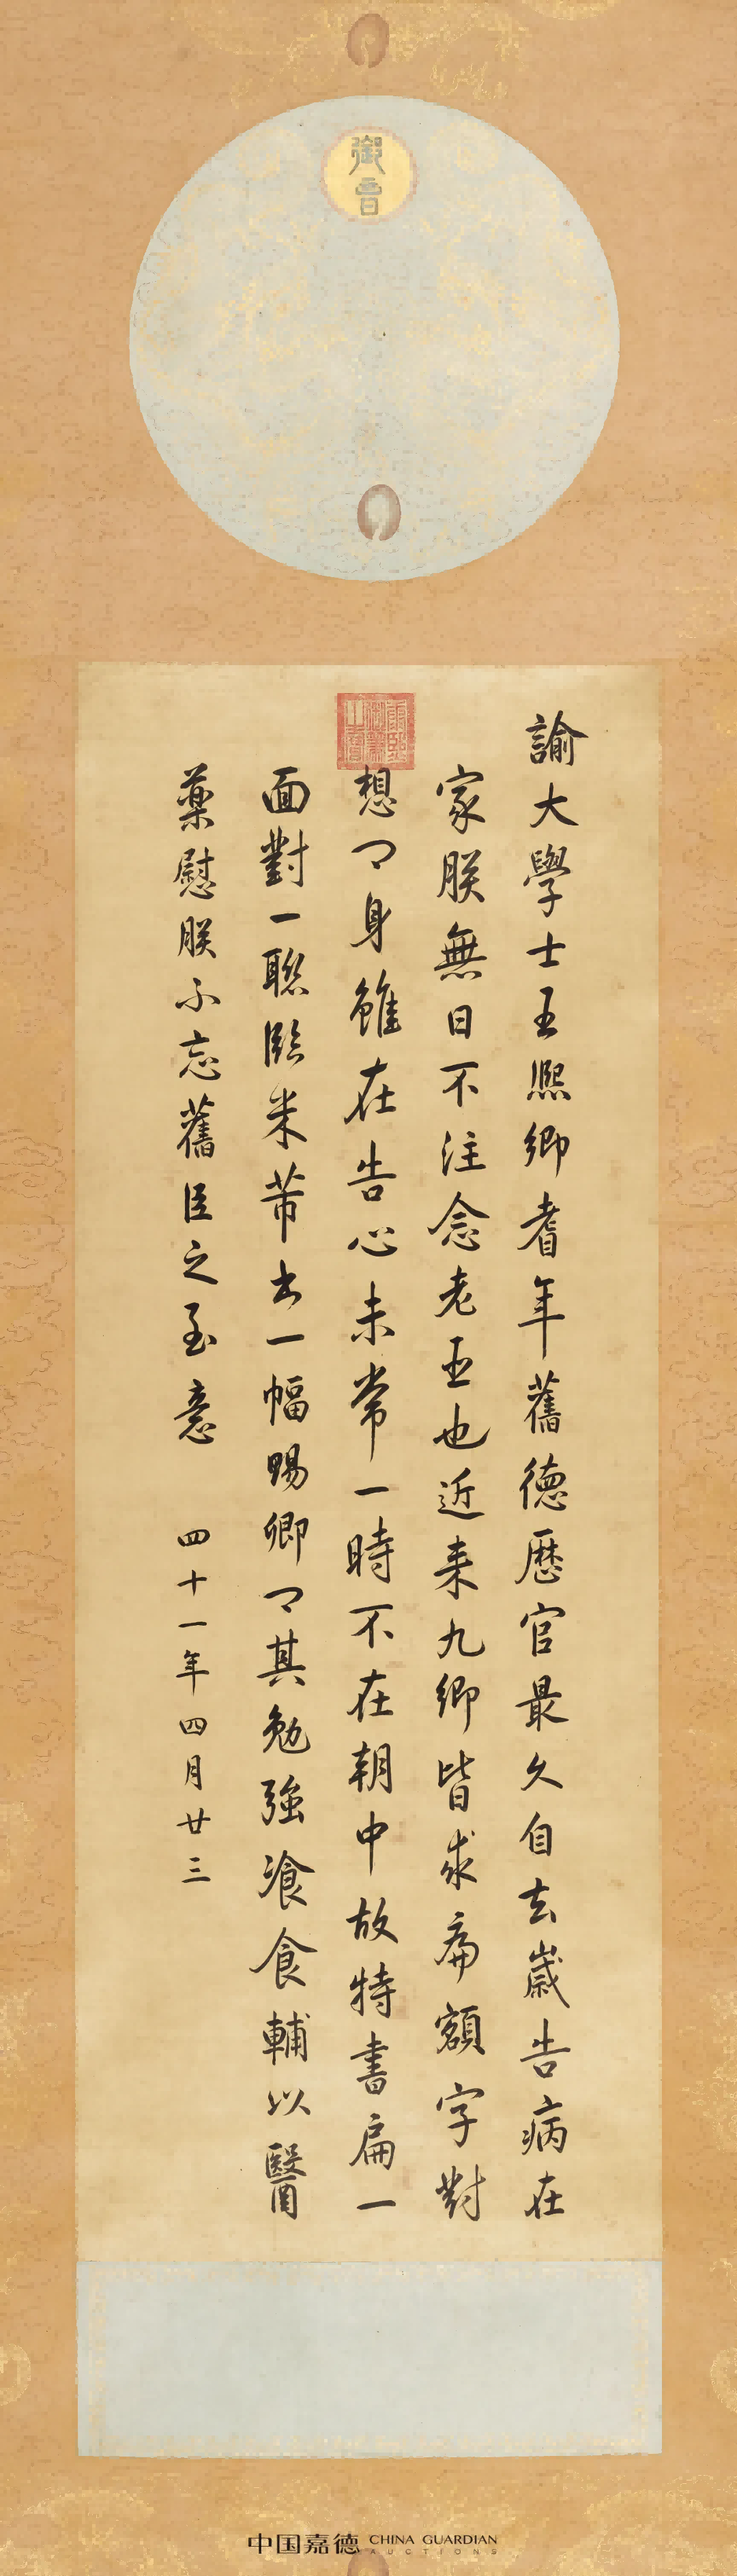 御書
康熙御筆之寶
諭大學士王熙卿耆年舊德歷官最久自去歲告病在
家朕無日不注念老臣也近来九卿皆求扁額字對
想卿身雖在告心未常一時不在朝中故特書扁一
面對一聯臨米芾書一幅賜卿卿其勉強飡食輔以醫
藥慰朕不忘舊臣之至意 四十一年四月廿三
中国嘉德 CHINA GUARDIAN
AUCTIONS